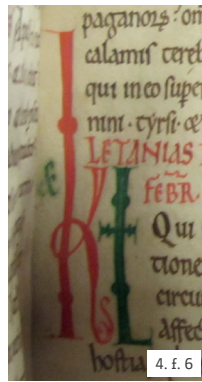 paganoꝝ· om
calamis tereb
qui in eo supe
nini· tyrsi· &
LETANIAS
KL FEBR
Qui
tione
circu
affec
hostia
4. f. 6